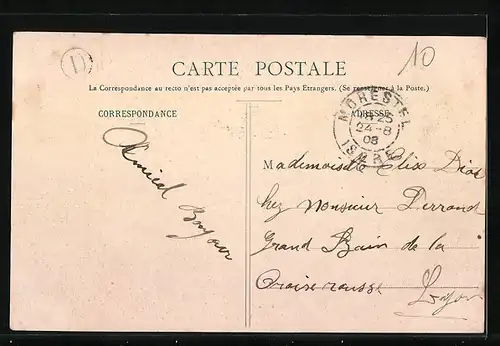 D
10
CARTE POSTALE
La Correspondance au recto n'est pas acceptée par tous les Pays Etrangers. (Se renseigner à la Poste.)
CORRESPONDANCE
ADRESSE
MORESTEL
24-8
08
ISÈRE
Amical
Bonjour
Mademoiselle Elix
chez Monsieur Perrand
Grand Bain de la
Croix rousse
Lyon